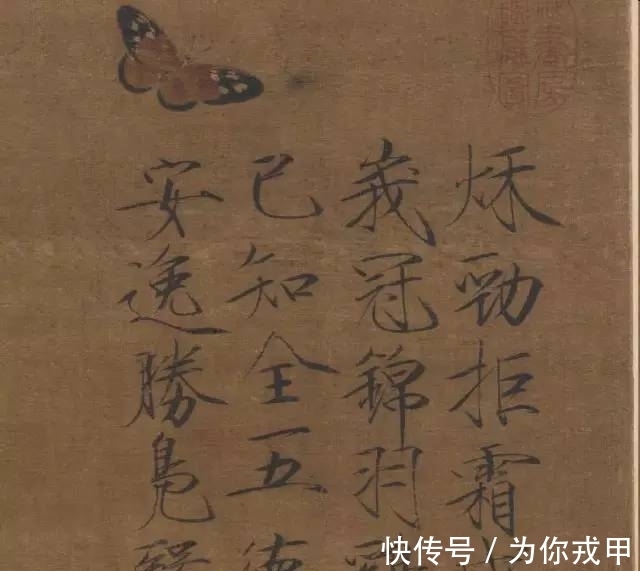 秋勁拒霜
峩冠錦羽
已知全五
安逸勝鳧
快传号 / 为你戎甲